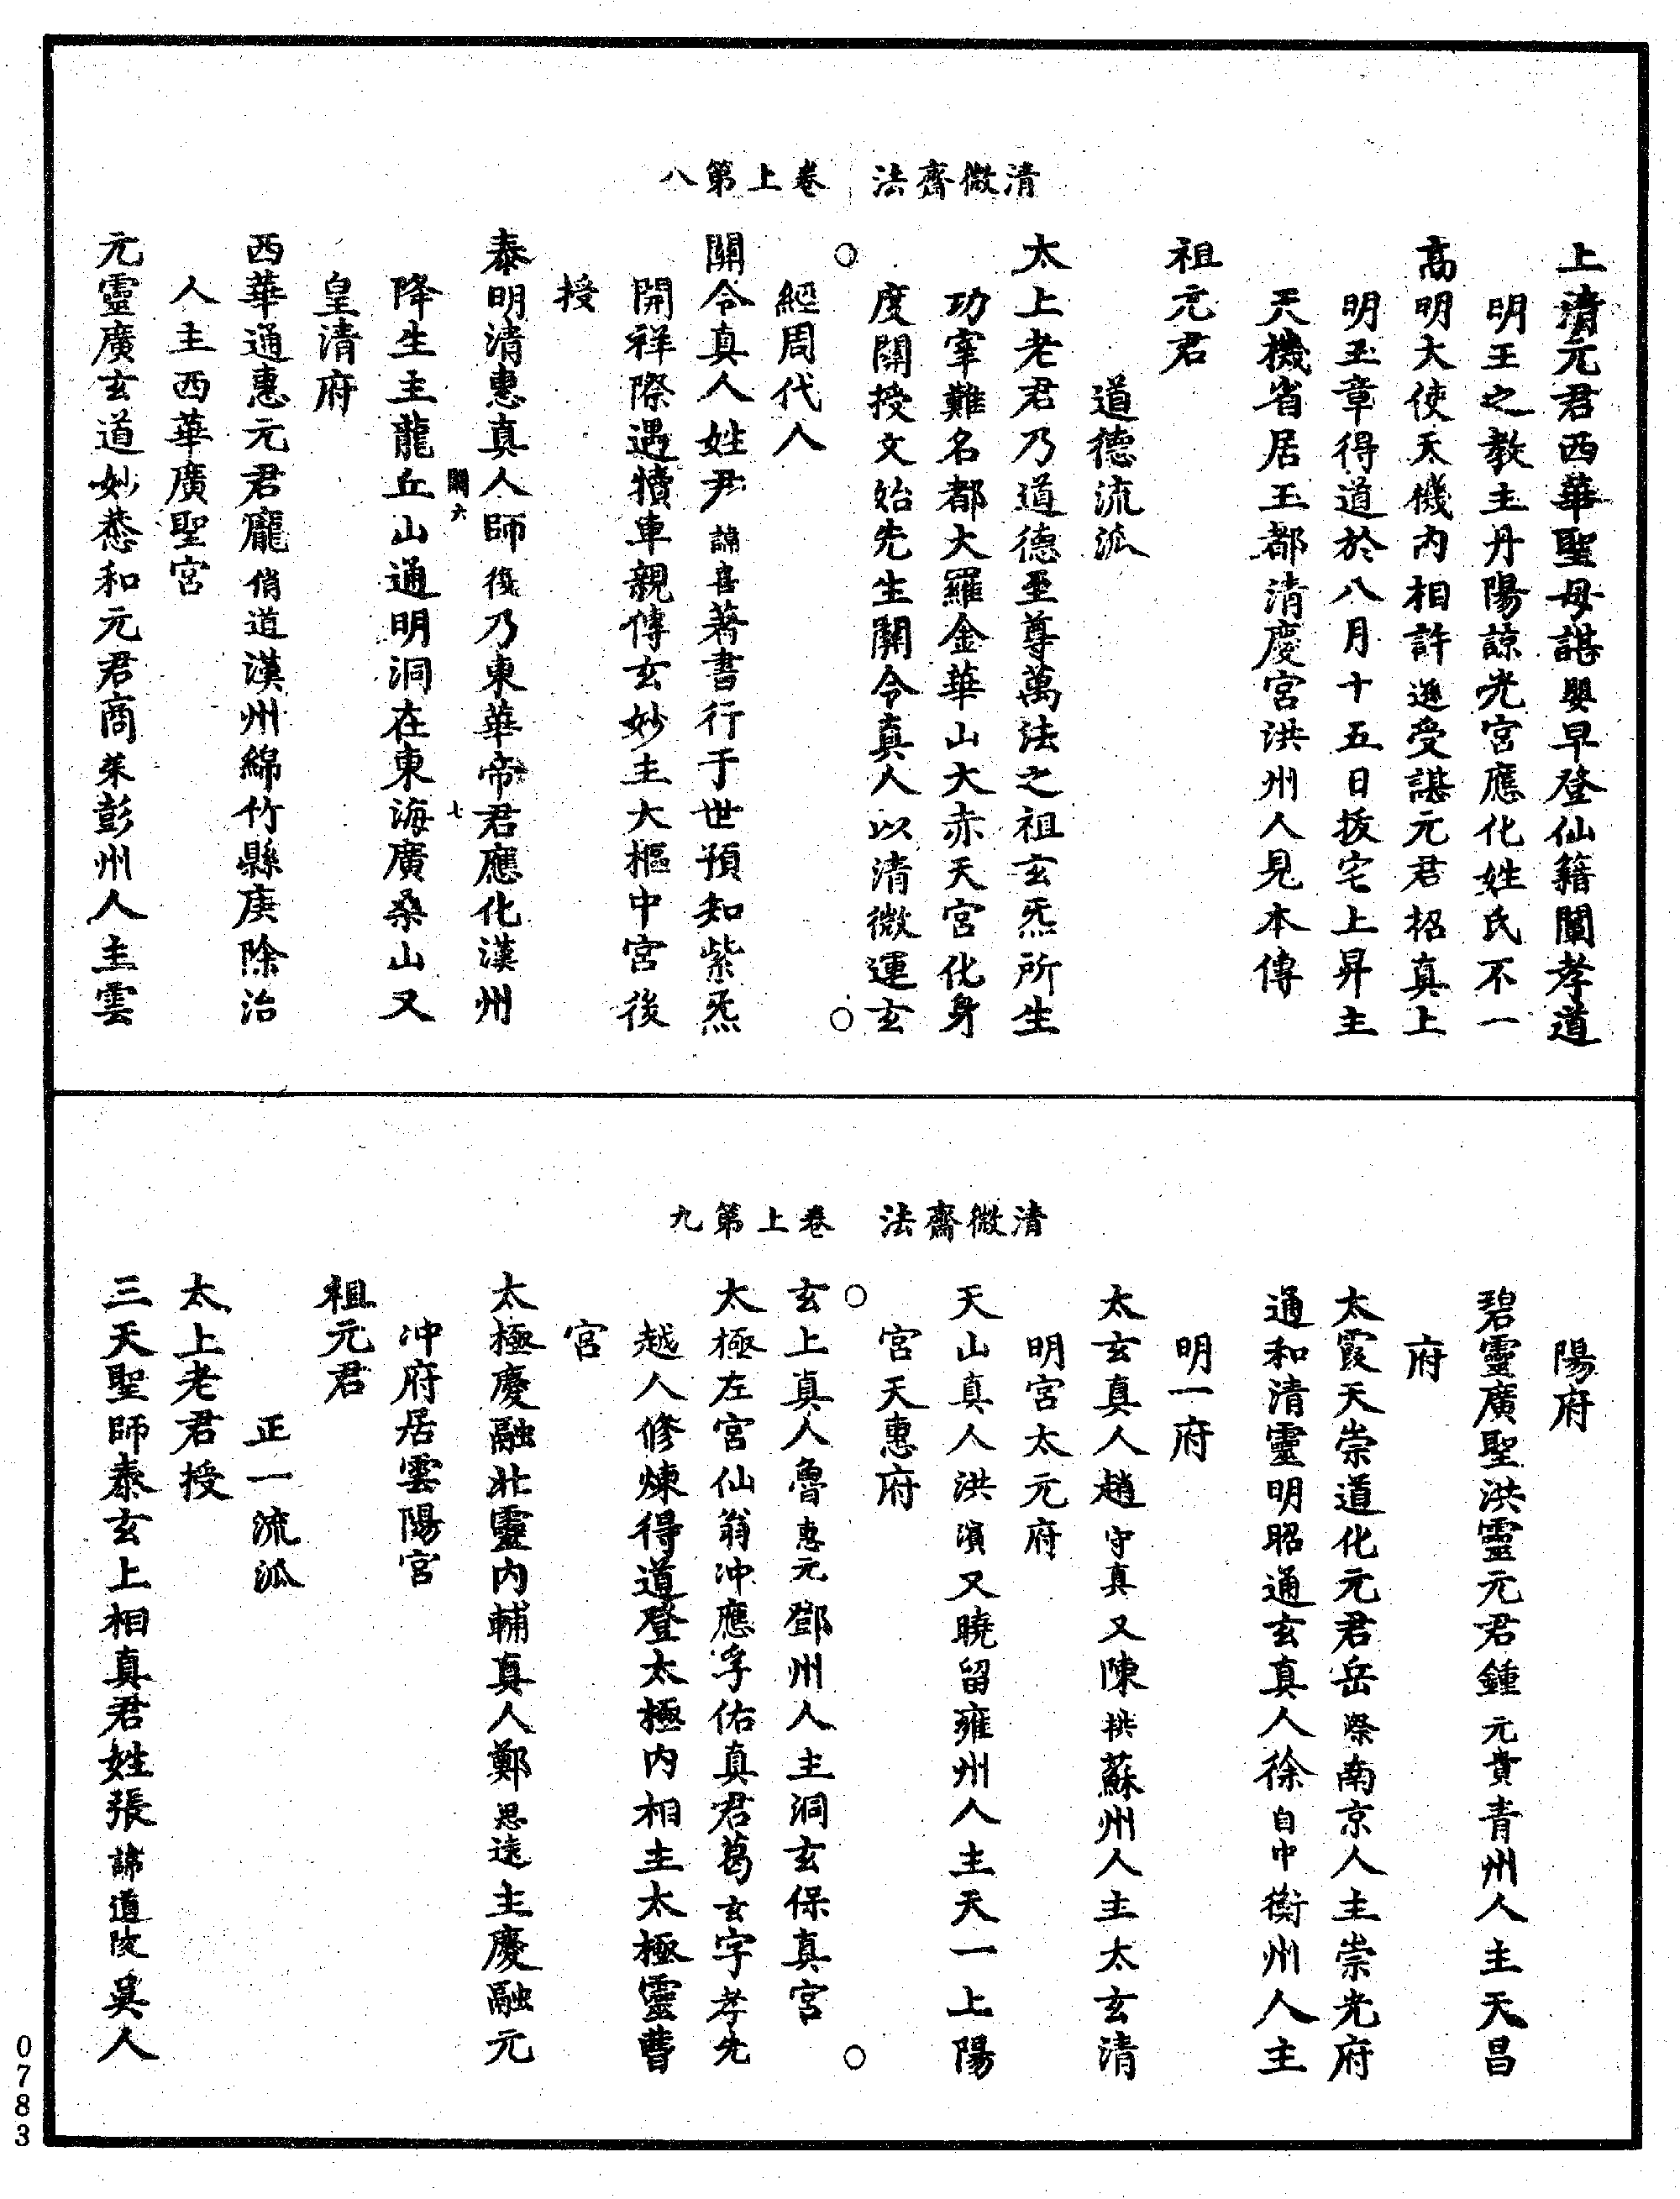 清微齋法　卷上第八
上清元君西華聖母諶嬰早登仙籍闡孝道
明王之教主丹陽諒光宮應化姓氏不一
高明大使天機內相許遜受諶元君招真上
明玉章得道於八月十五日拔宅上昇主
天機省居玉都清慶宮洪州人見本傳
祖元君
道德流派
太上老君乃道德至尊萬法之祖玄炁所生
功宰難名都大羅金華山大赤天宮化身
度關授文始先生關令真人以清微運玄
經周代人
關令真人姓尹諱喜著書行于世預知紫炁
開祥際遇犢車親傳玄妙主大樞中宮後
授
泰明清惠真人師復乃東華帝君應化漢州
關六　七
降生主龍丘山通明洞在東海廣桑山又
皇清府
西華通惠元君龐俏道漢州綿竹縣庚除治
人主西華廣聖宮
元靈廣玄道妙恭和元君商茱彭州人主雲
清微齋法　卷上第九
陽府
碧靈廣聖洪靈元君鍾元賁青州人主天昌
府
太霞天崇道化元君岳際南京人主崇光府
通和清靈明昭通玄真人徐自中衡州人主
明一府
太玄真人趙守真又陳拱蘇州人主太玄清
明宮太元府
天山真人洪濱又曉留雍州人主天一上陽
宮天惠府
玄上真人魯惠元鄧州人主洞玄保真宮
太極左宮仙翁冲應孚佑真君葛玄字孝先
越人修煉得道登太極內相主太極靈曹
宮
太極慶融北靈內輔真人鄭思遠主慶融元
冲府居雲陽宮
祖元君
正一流派
太上老君授
三天聖師泰玄上相真君姓張諱道陵吳人
0783